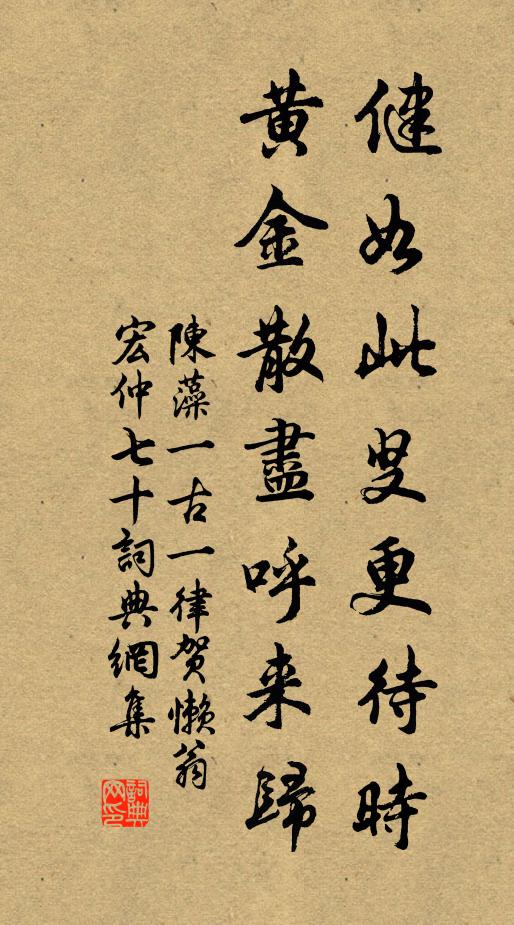 健如此叟更待時
黃金散盡呼来歸
陳藻一古一律贺懒翁
宏仲七十詞典網集
詞典
网印